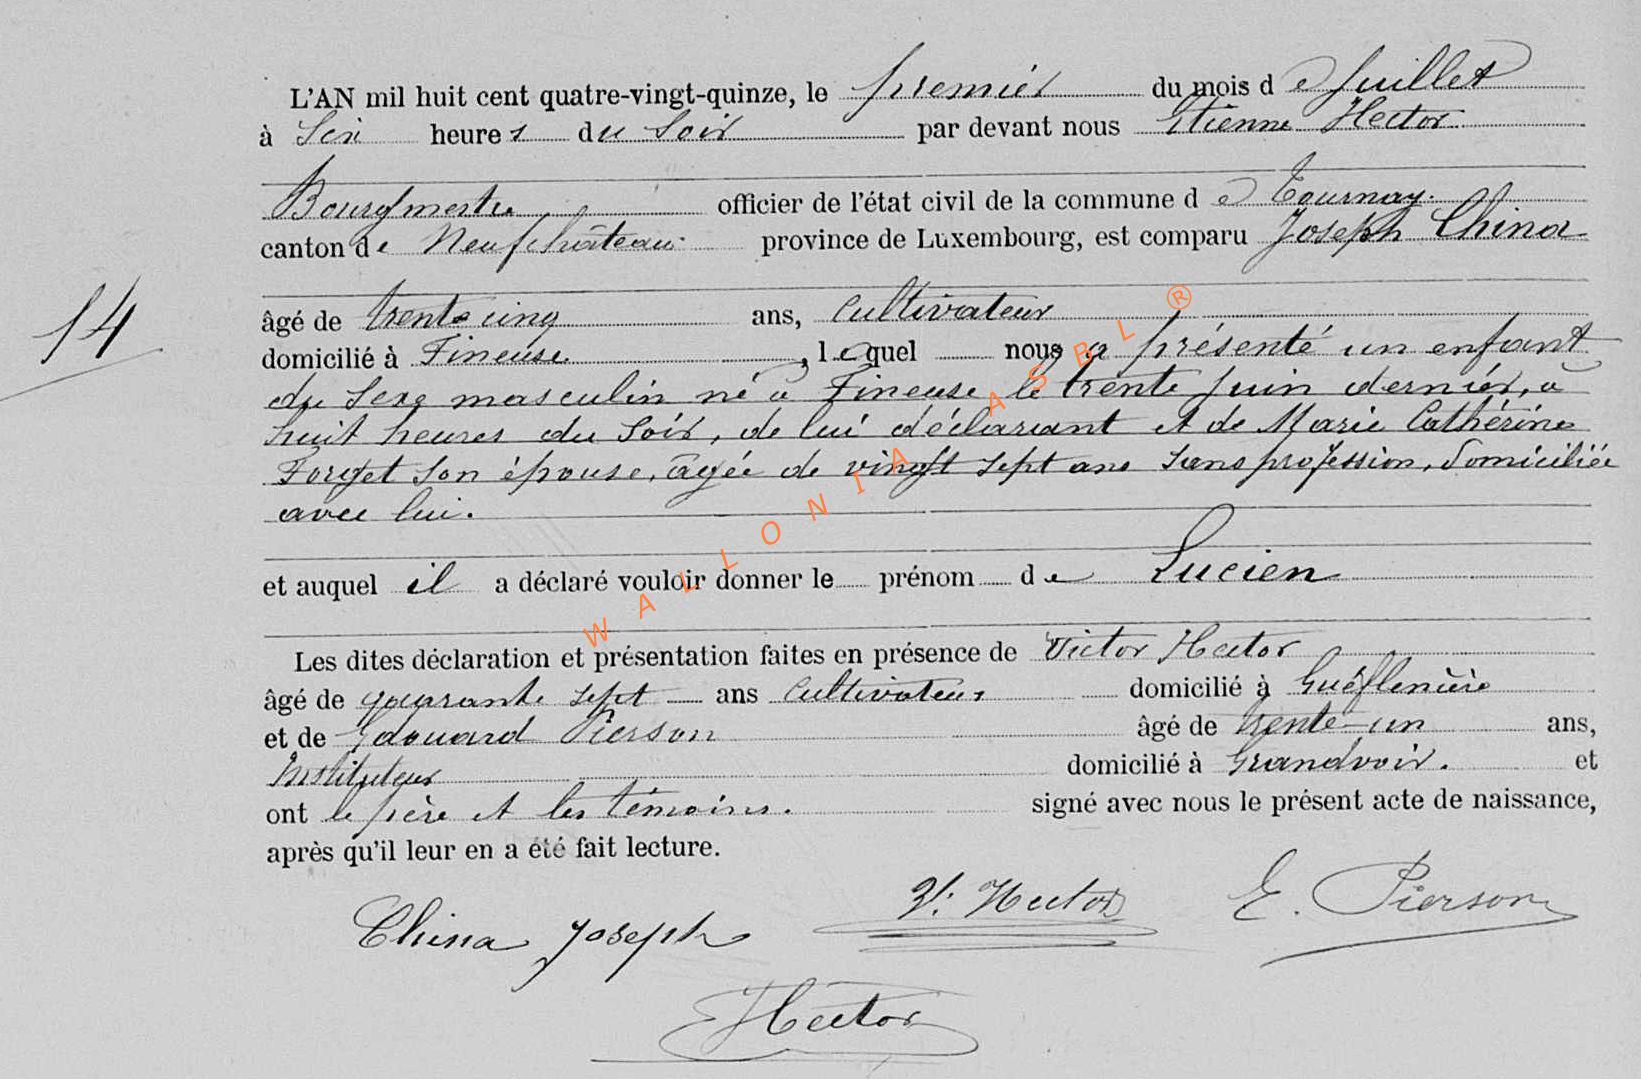 L'AN mil huit cent quatre-vingt-quinze, le premier du mois de Juillet
à Six heures du Soir par devant nous Etienne Hector
Bourgmestre officier de l'état civil de la commune de Tournay.
canton de Neufchâteau province de Luxembourg, est comparu Joseph China
14
âgé de trente cinq ans, Cultivateur
domicilié à Tineuse, lequel nous a présenté un enfant
du Sexe masculin né à Fineuse le trente Juin dernier, à
huit heures du Soir, de lui déclarant et de Marie Cathérine
Forget Son épouse, agée de vingt sept ans Sans profession, domiciliée
avec lui.
et auquel il a déclaré vouloir donner le prénom de Lucien
Les dites déclaration et présentation faites en présence de Victor Hector
âgé de quarante sept ans Cultivateur domicilié à
et de Edouard Pierson âgé de trente-un ans,
Instituteur domicilié à Grandvoir. et
ont le père et les témoins. signé avec nous le présent acte de naissance,
après qu'il leur en a été fait lecture.
China Joseph V. Hector E. Pierson
Hector
WALLONIA ASBL ®